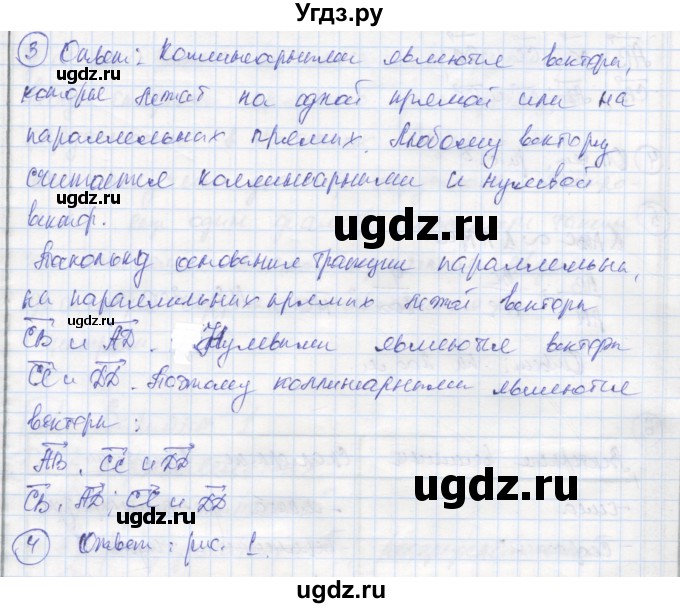 Угдз.ру
③ Ответ: Коллинеарными являются вектора,
которые лежат на одной прямой или на
параллельных прямых. Любому вектору
считается коллинеарными и нулевой
вектор.
Поскольку основание трапеции параллельны,
на параллельных прямых лежат векторы
CB и AD. Нулевыми являются векторы
CC и DD. Поэтому коллинеарными являются
векторы:
AB, CC и DD
CB, AD; CC и DD
④ Ответ: рис. 1.
ugdz.ru
ugdz.ru
ugdz.ru
ugdz.ru
ugdz.ru
ugdz.ru
ugdz.ru
ugdz.ru
ugdz.ru
ugdz.ru
ugdz.ru